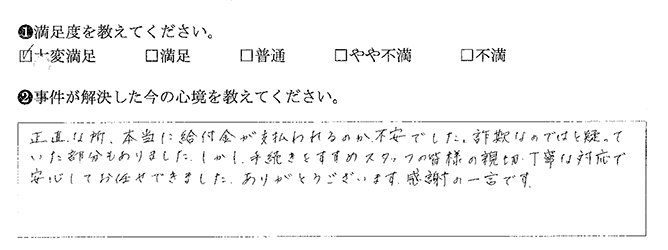 ❶満足度を教えてください。
☑大変満足 □満足 □普通 □やや不満 □不満
❷事件が解決した今の心境を教えてください。
正直な所、本当に給付金が支払われるのか、不安でした。詐欺なのではと疑って
いた部分もありました。しかし、手続きをすすめスタッフの皆様の親切、丁寧な対応で
安心してお任せできました。ありがとうございます。感謝の一言です。